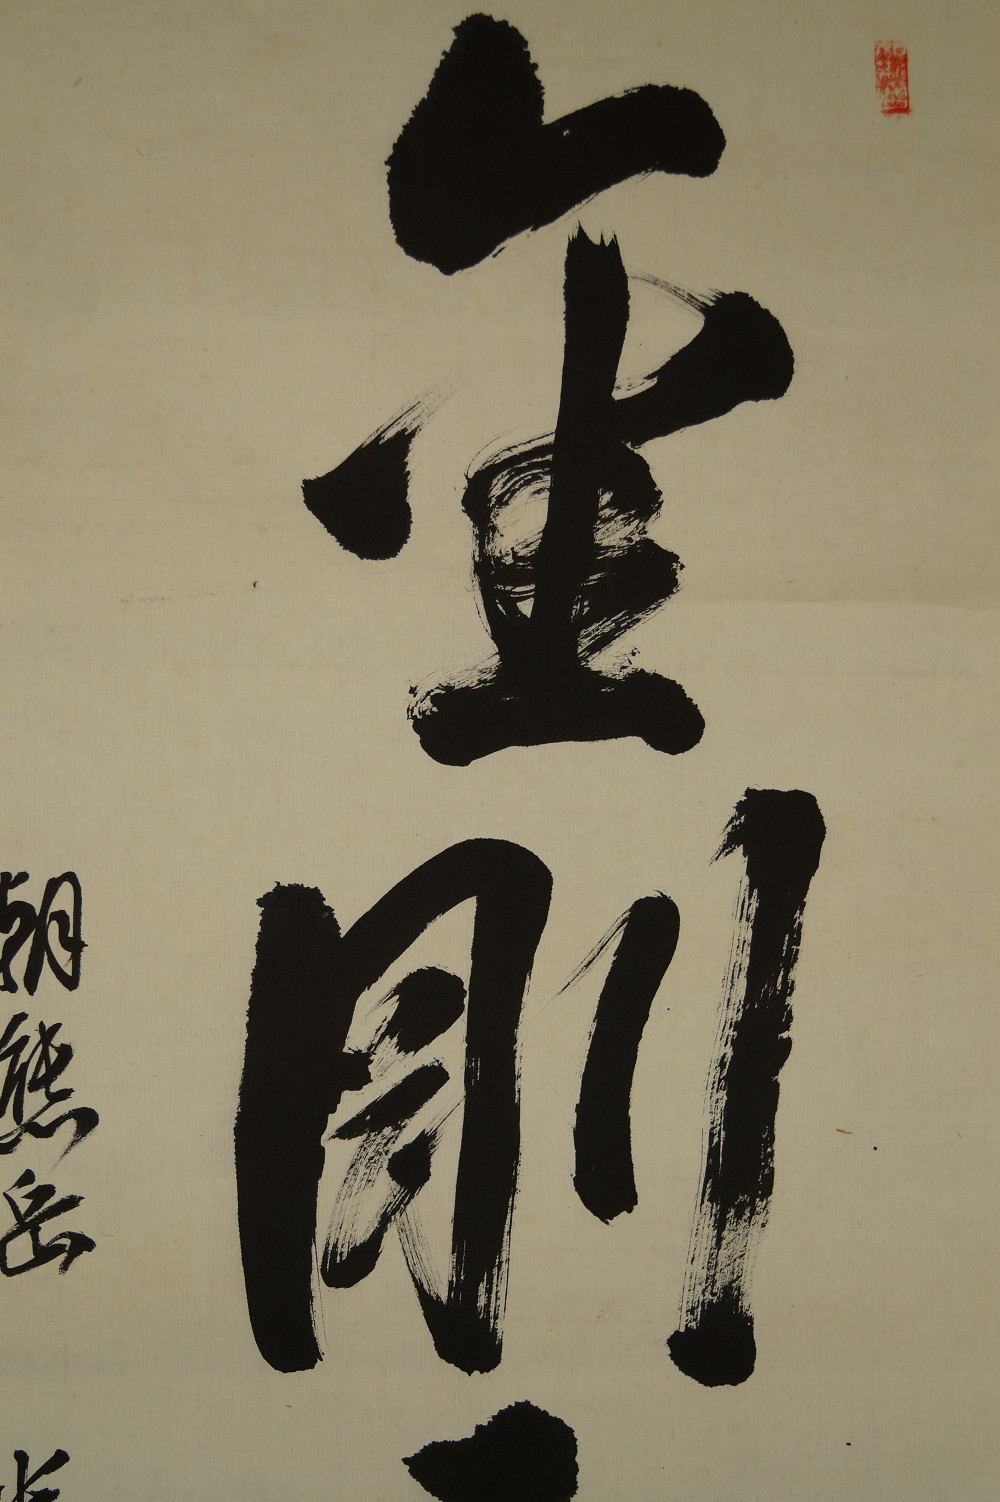 金剛
朝熊岳